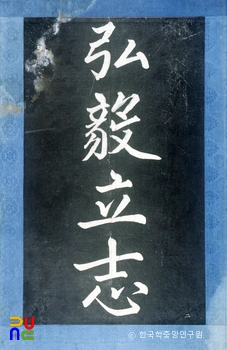 弘毅立志
二
© 한국학중앙연구원